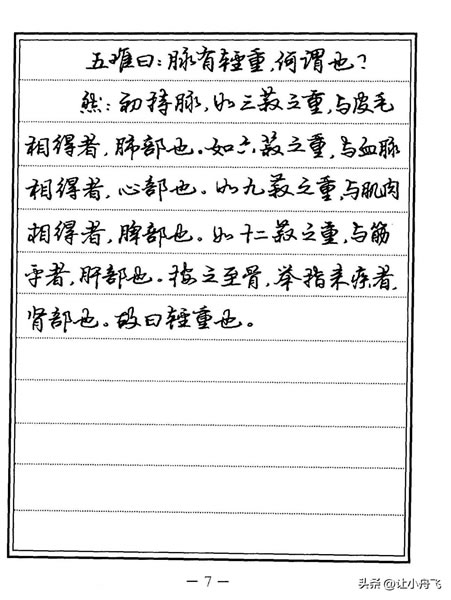 五难曰：脉有轻重，何谓也？
然：初持脉，如三菽之重，与皮毛
相得者，肺部也。如六菽之重，与血脉
相得者，心部也。如九菽之重，与肌肉
相得者，脾部也。如十二菽之重，与筋
平者，肝部也。按之至骨，举指来疾者，
肾部也。故曰轻重也。
— 7 —
头条 @让小舟飞